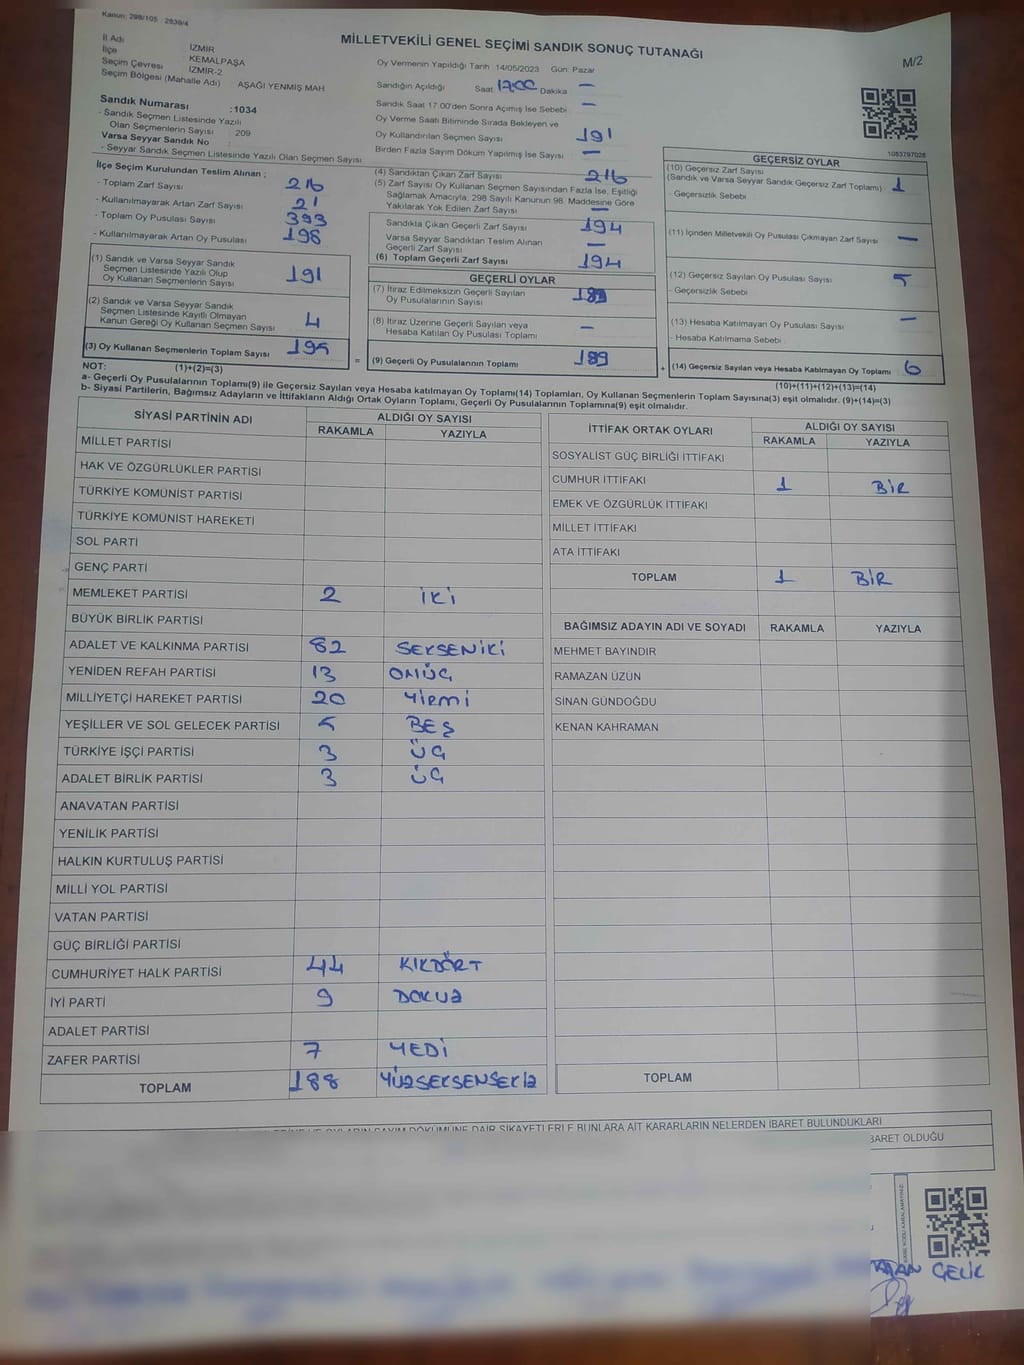 Kanun: 298/105 : 2839/4
MİLLETVEKİLİ GENEL SEÇİMİ SANDIK SONUÇ TUTANAĞI
M/2
İl Adı İZMİR
İlçe KEMALPAŞA
Seçim Çevresi İZMİR-2
Seçim Bölgesi (Mahalle Adı) : AŞAĞI YENMİŞ MAH
Sandık Numarası : 1034
- Sandık Seçmen Listesinde Yazılı
Olan Seçmenlerin Sayısı : 209
Varsa Seyyar Sandık No :
- Seyyar Sandık Seçmen Listesinde Yazılı Olan Seçmen Sayısı
Oy Vermenin Yapıldığı Tarih 14/05/2023 Gün: Pazar
Sandığın Açıldığı Saat 17:00 Dakika —
Sandık Saat 17:00'den Sonra Açımış İse Sebebi : —
Oy Verme Saati Bitiminde Sırada Bekleyen ve
Oy Kullandırılan Seçmen Sayısı 191
Birden Fazla Sayım Döküm Yapılmış İse Sayısı —
1083797026
İlçe Seçim Kurulundan Teslim Alınan ;
- Toplam Zarf Sayısı 216
- Kullanılmayarak Artan Zarf Sayısı 21
- Toplam Oy Pusulası Sayısı 393
- Kullanılmayarak Artan Oy Pusulası 198
(1) Sandık ve Varsa Seyyar Sandık
Seçmen Listesinde Yazılı Olup
Oy Kullanan Seçmenlerin Sayısı 191
(2) Sandık ve Varsa Seyyar Sandık
Seçmen Listesinde Kayıtlı Olmayan
Kanun Gereği Oy Kullanan Seçmen Sayısı 4
(3) Oy Kullanan Seçmenlerin Toplam Sayısı 195
(4) Sandıktan Çıkan Zarf Sayısı 216
(5) Zarf Sayısı Oy Kullanan Seçmen Sayısından Fazla İse, Eşitliği
Sağlamak Amacıyla, 298 Sayılı Kanunun 98. Maddesine Göre
Yakılarak Yok Edilen Zarf Sayısı —
Sandıkta Çıkan Geçerli Zarf Sayısı 194
Varsa Seyyar Sandıktan Teslim Alınan
Geçerli Zarf Sayısı —
(6) Toplam Geçerli Zarf Sayısı 194
GEÇERLİ OYLAR
(7) İtiraz Edilmeksizin Geçerli Sayılan
Oy Pusulalarının Sayısı 189
(8) İtiraz Üzerine Geçerli Sayılan veya
Hesaba Katılan Oy Pusulası Toplamı —
= (9) Geçerli Oy Pusulalarının Toplamı 189
GEÇERSİZ OYLAR
(10) Geçersiz Zarf Sayısı
(Sandık ve Varsa Seyyar Sandık Geçersiz Zarf Toplamı) 1
- Geçersizlik Sebebi :
(11) İçinden Milletvekili Oy Pusulası Çıkmayan Zarf Sayısı —
(12) Geçersiz Sayılan Oy Pusulası Sayısı 5
- Geçersizlik Sebebi :
(13) Hesaba Katılmayan Oy Pusulası Sayısı —
- Hesaba Katılmama Sebebi :
+ (14) Geçersiz Sayılan veya Hesaba Katılmayan Oy Toplamı 6
NOT: (1)+(2)=(3)
(10)+(11)+(12)+(13)=(14)
a- Geçerli Oy Pusulalarının Toplamı(9) ile Geçersiz Sayılan veya Hesaba katılmayan Oy Toplamı(14) Toplamları, Oy Kullanan Seçmenlerin Toplam Sayısına(3) eşit olmalıdır. (9)+(14)=(3)
b- Siyasi Partilerin, Bağımsız Adayların ve İttifakların Aldığı Ortak Oyların Toplamı, Geçerli Oy Pusulalarının Toplamına(9) eşit olmalıdır.
SİYASİ PARTİNİN ADI ALDIĞI OY SAYISI
RAKAMLA YAZIYLA
MİLLET PARTİSİ
HAK VE ÖZGÜRLÜKLER PARTİSİ
TÜRKİYE KOMÜNİST PARTİSİ
TÜRKİYE KOMÜNİST HAREKETİ
SOL PARTİ
GENÇ PARTİ
MEMLEKET PARTİSİ 2 İKİ
BÜYÜK BİRLİK PARTİSİ
ADALET VE KALKINMA PARTİSİ 82 SEKSENİKİ
YENİDEN REFAH PARTİSİ 13 ONÜÇ
MİLLİYETÇİ HAREKET PARTİSİ 20 YİRMİ
YEŞİLLER VE SOL GELECEK PARTİSİ 5 BEŞ
TÜRKİYE İŞÇİ PARTİSİ 3 ÜÇ
ADALET BİRLİK PARTİSİ 3 ÜÇ
ANAVATAN PARTİSİ
YENİLİK PARTİSİ
HALKIN KURTULUŞ PARTİSİ
MİLLİ YOL PARTİSİ
VATAN PARTİSİ
GÜÇ BİRLİĞİ PARTİSİ
CUMHURİYET HALK PARTİSİ 44 KIKDÖRT
İYİ PARTİ 9 DOKUZ
ADALET PARTİSİ
ZAFER PARTİSİ 7 YEDİ
TOPLAM 188 YÜZSEKSENSEKİZ
İTTİFAK ORTAK OYLARI ALDIĞI OY SAYISI
RAKAMLA YAZIYLA
SOSYALİST GÜÇ BİRLİĞİ İTTİFAKI
CUMHUR İTTİFAKI 1 BİR
EMEK VE ÖZGÜRLÜK İTTİFAKI
MİLLET İTTİFAKI
ATA İTTİFAKI
TOPLAM 1 BİR
BAĞIMSIZ ADAYIN ADI VE SOYADI RAKAMLA YAZIYLA
MEHMET BAYINDIR
RAMAZAN ÜZÜN
SİNAN GÜNDOĞDU
KENAN KAHRAMAN
TOPLAM
OYLARIN SAYIM DÖKÜMÜNE DAİR ŞİKAYETLERLE BUNLARA AİT KARARLARIN NELERDEN İBARET BULUNDUKLARI
OLDUĞU
ÇELİK